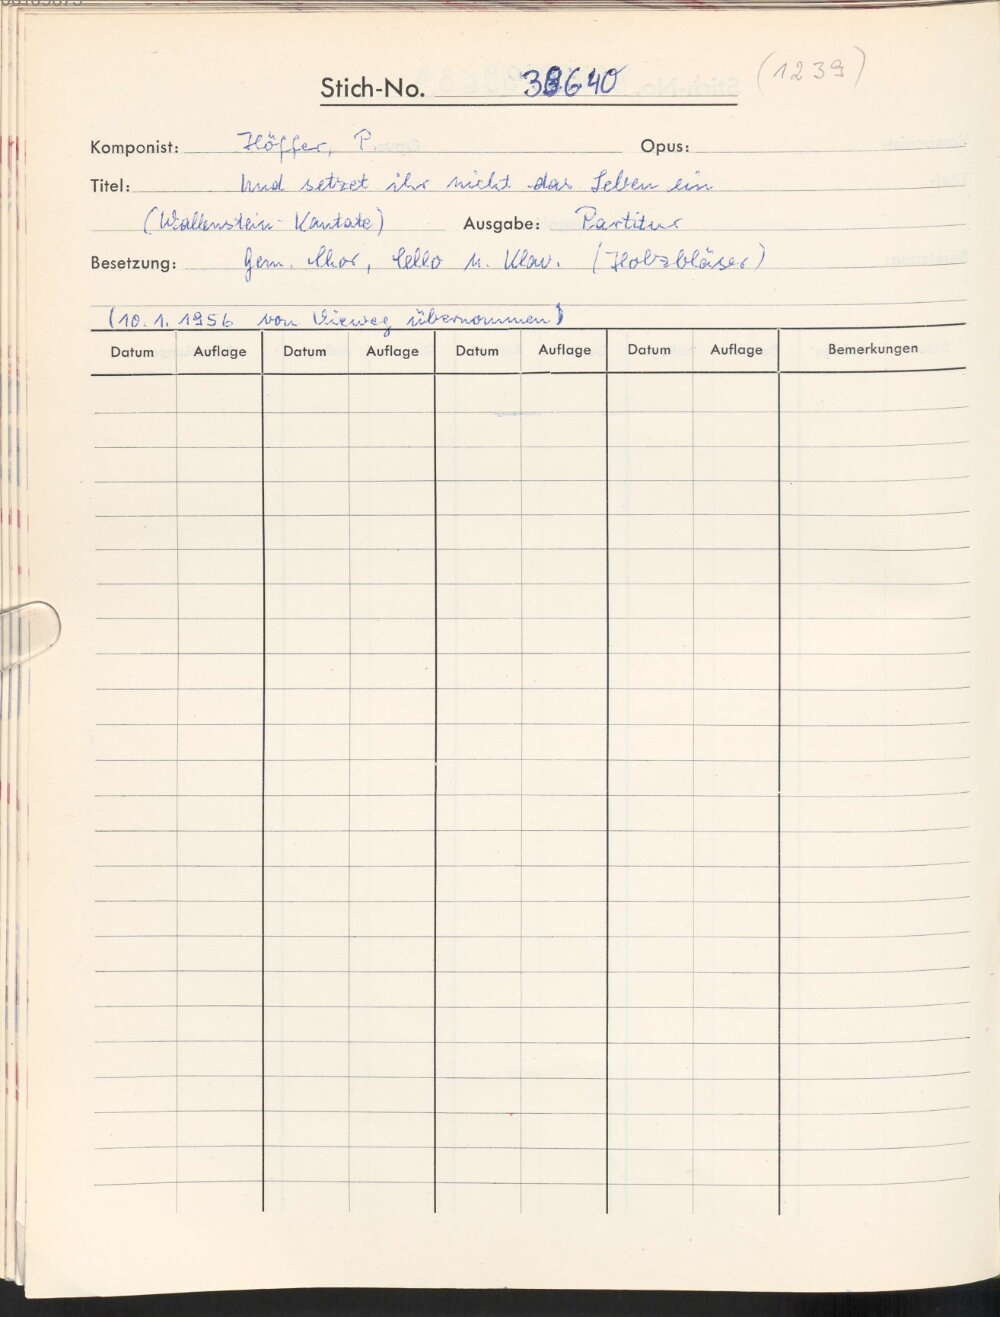 Stich-No. 38640 (1239)
Komponist: Höffer, P. Opus:
Titel: Und setzet ihr nicht das Leben ein
(Wallenstein-Kantate) Ausgabe: Partitur
Besetzung: Gem. Chor, Cello u. Klav. (Holzbläser)
(10.1.1956 von Vieweg übernommen)
Datum Auflage Datum Auflage Datum Auflage Datum Auflage Bemerkungen